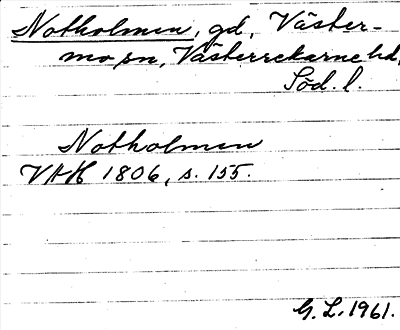 Notholmen, gd, Väster-
mo sn, Västerrekarne hd,
Söd. l.
Notholmen
VAH 1806, s. 155.
G. L. 1961.